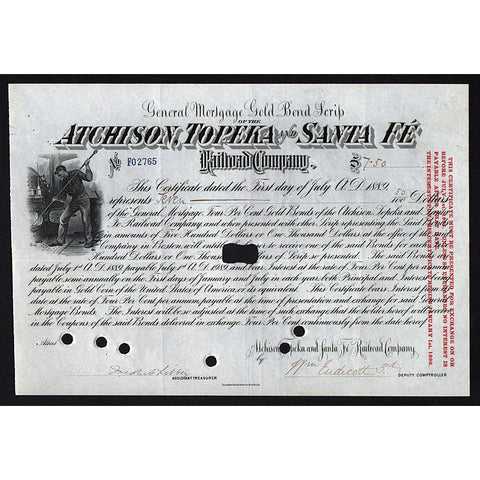 General Mortgage Gold Bond Scrip
OF THE
ATCHISON, TOPEKA and SANTA FÉ
Railroad Company.
No F02765
$7.50
This Certificate dated the First day of July A.D. 1889,
represents Seven 50/100 Dollars
of the General Mortgage Four Per Cent Gold Bonds of the Atchison, Topeka and Santa
Fe Railroad Company, and when presented with other similar Scrip
in amounts of Five Hundred Dollars or One Thousand Dollars at the office of said
Company in Boston will entitle to receive one of the said Bonds for each
Hundred Dollars or One Thousand of Scrip so presented. The said
dated July 1st A.D. 1889 payable July 1st A.D. 1989 and bear Interest at the rate of Four Per Cent per annum
payable semi-annually on the first days of January and July in each year, both Principal and Interest
payable in Gold Coin of the United States of America, or its equivalent. This Certificate bears Interest from
date at the rate of Four Per Cent per annum payable at the time of presentation and exchange for said
Mortgage Bonds. The Interest will be so adjusted at the time of such exchange that the holder hereof will receive
in the Coupons of the said Bonds delivered in exchange Four Per Cent continuously from the date hereof.
Attest
Atchison Topeka and Santa Fé Railroad Company,
by Wm Endicott 3rd
ASSISTANT TREASURER
DEPUTY COMPTROLLER
THIS CERTIFICATE MUST BE PRESENTED FOR EXCHANGE ON OR
BEFORE JULY NO INTEREST IS
PAYABLE
THE INTEREST JANUARY 1st, 1890.